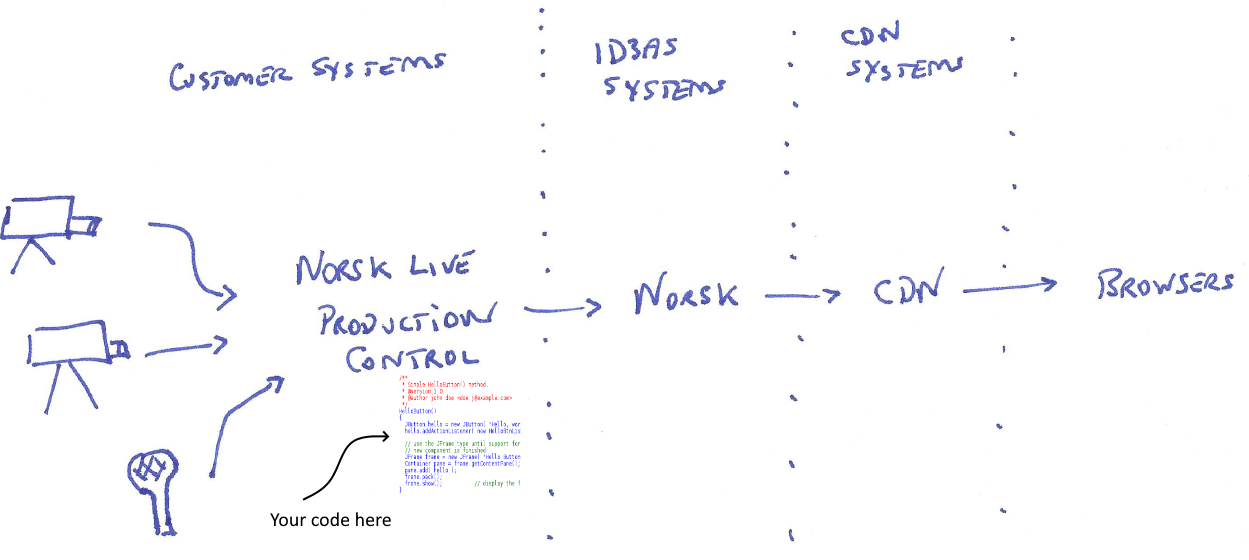 CUSTOMER SYSTEMS
ID3AS
SYSTEMS
CDN
SYSTEMS
NORSK LIVE
PRODUCTION
CONTROL
NORSK
CDN
BROWSERS
/**
* Simple HelloButton() method.
* @version 1.0
* @author john doe <doe.j@example.com>
*/
HelloButton()
{
JButton hello = new JButton( "Hello, wor
hello.addActionListener( new HelloBtnLis
// use the JFrame type until support for
// new component is finished
JFrame frame = new JFrame( "Hello Button
Container pane = frame.getContentPane();
pane.add( hello );
frame.pack();
frame.show(); // display the f
}
Your code here